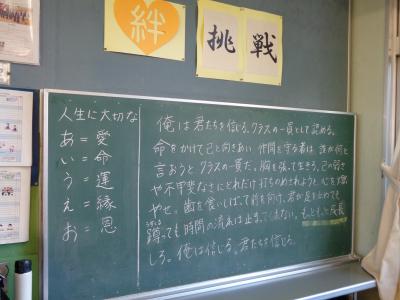 絆
挑戦
人生に大切な
あ＝愛
い＝命
う＝運
え＝縁
お＝恩
俺は君たちを信じる。クラスの一員として認める。
命をかけて己と向きあい仲間を守る者は、誰が何と
言おうとクラスの一員だ。胸を張って生きろ。己の弱さ
や不甲斐なさにどれだけ打ちのめされようと、心を燃
やせ。歯を食いしばって前を向け。君が足を止めても
蹲っても時間の流れは止まってくれない。もっともっと成長
しろ。俺は信じる。君たちを信じる。